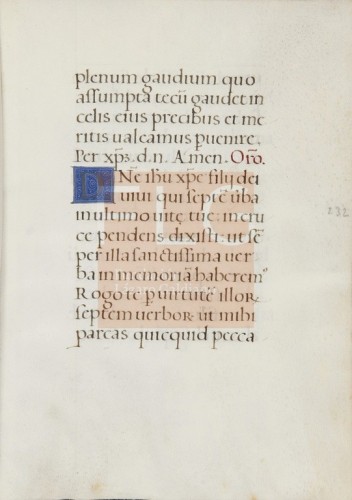 plenum gaudium quo
assumpta tecū gaudet in
celis eius precibus et me
ritis ualeamus puenire.
Per xp̄ȝ. d. n. Amen. Or̄o.
DNē ihū xpē filij dei
uiui qui septē ūba
in ultimo uitę tuę in cru
ce pendens dixisti: ut sē
per illa sanctissima uer
ba in memoriā haberem9
Rogo te p uirtutē illoꝝ
septem uerboꝝ ut mihi
parcas quicquid pecca
232